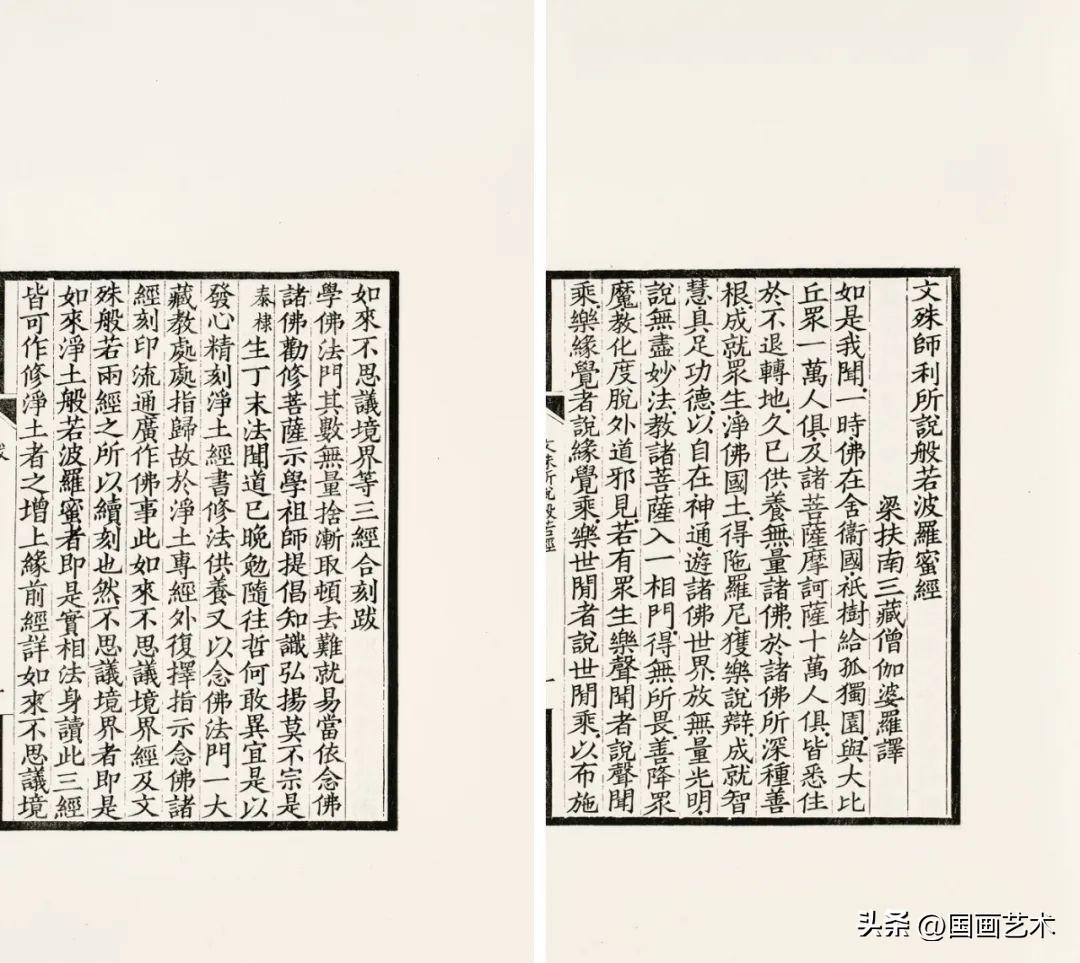 文殊師利所說般若波羅蜜經
梁扶南三藏僧伽婆羅譯
如是我聞一時佛在舍衞國祇樹給孤獨園與大比
丘眾一萬人俱及諸菩薩摩訶薩十萬人俱皆悉住
於不退轉地久已供養無量諸佛於諸佛所深種善
根成就眾生淨佛國土得陁羅尼獲樂說辯成就智
慧具足功德以自在神通遊諸佛世界放無量光明
說無盡妙法教諸菩薩入一相門得無所畏善降眾
魔教化度脫外道邪見若有眾生樂聲聞者說聲聞
乘樂緣覺者說緣覺乘樂世閒者說世閒乘以布施
文殊所說般若經
一
如來不思議境界等三經合刻跋
學佛法門其數無量捨漸取頓去難就易當依念佛
諸佛勸修菩薩示學祖師提倡知識弘揚莫不宗是
泰棣生丁末法聞道已晚勉隨往哲何敢異宜是以
發心精刻淨土經書修法供養又以念佛法門一大
藏教處處指歸故於淨土專經外復擇指示念佛諸
經刻印流通廣作佛事此如來不思議境界經及文
殊般若兩經之所以續刻也然不思議境界者即是
如來淨土般若波羅蜜者即是實相法身讀此三經
皆可作修淨土者之增上緣前經詳如來不思議境
头条 @国画艺术